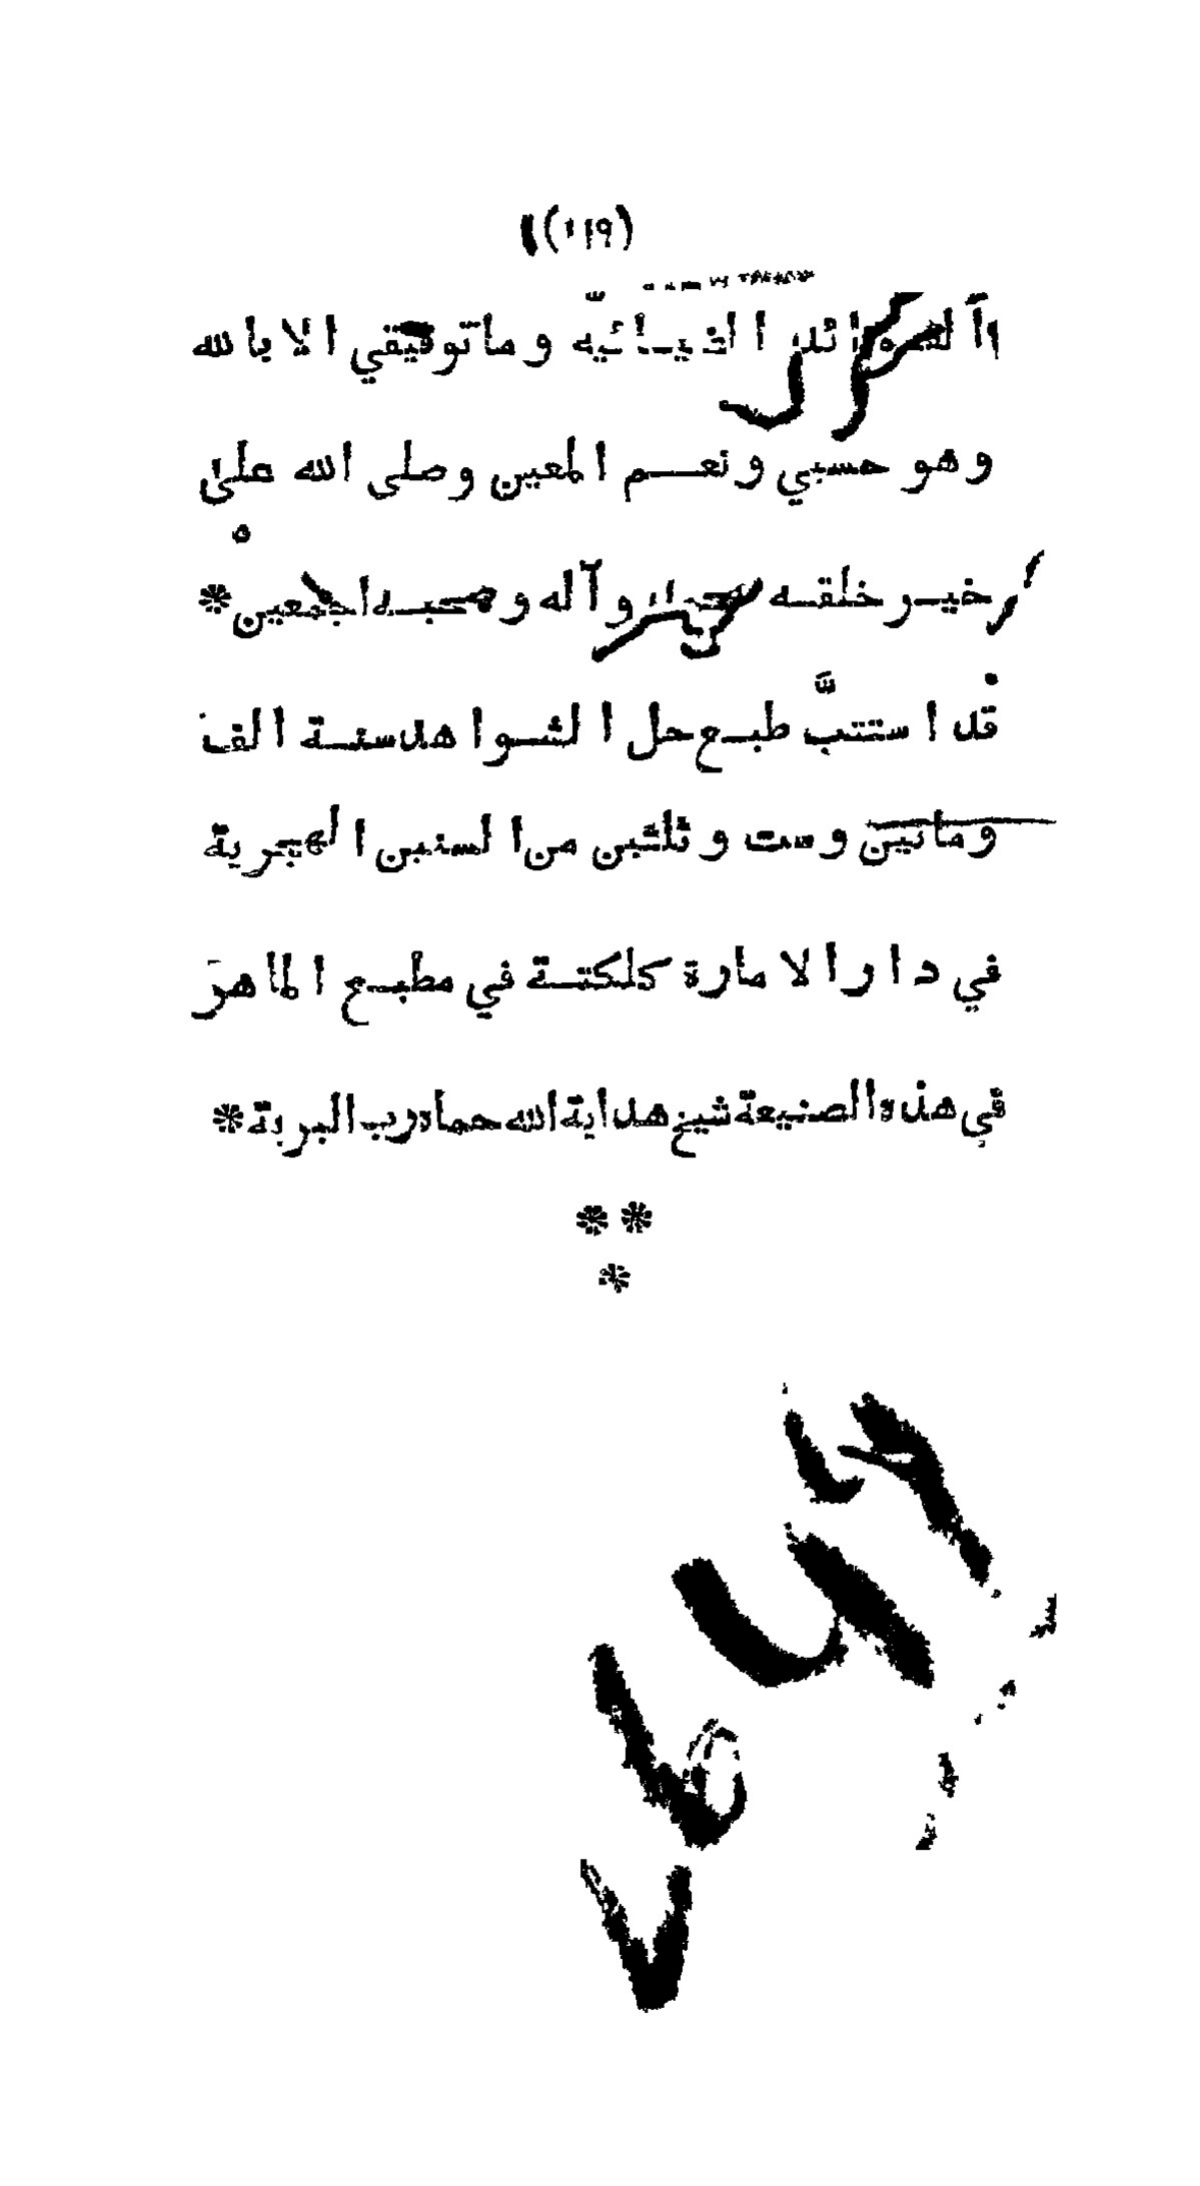 (١١٩)
الفوائد الضيائيّه وماتوفيقي الا بالله
وهو حسبي ونعم المعين وصلى الله على
خير خلقه محمد وآله وصحبه اجمعين *
قد استتبَّ طبع حل الشواهد سنة الف
ومائتين وست وثلثين من السنين الهجرية
في دار الامارة كلكتة في مطبع الماهر
في هذه الصنيعة شيخ هداية الله حماه رب البرية *
* *
*